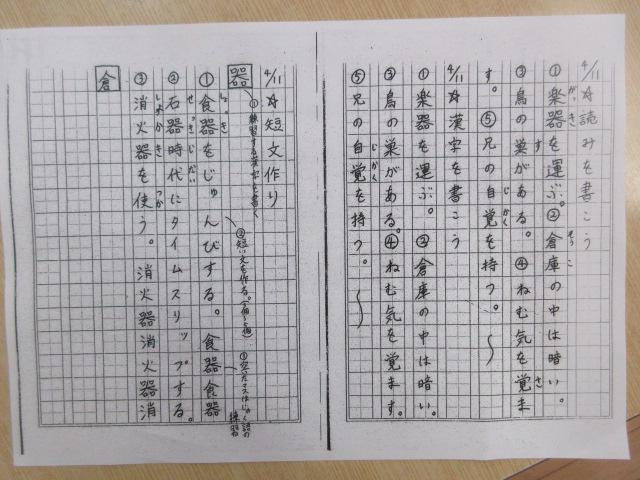 4/11 ☆読みを書こう
①楽器を運ぶ。②倉庫の中は暗い。
がっき
そうこ
③鳥の巣がある。④ねむ気を覚ま
す
さ
す。⑤兄の自覚を持つ。〜
じかく
4/11 ☆漢字を書こう
①楽器を運ぶ。②倉庫の中は暗い。
③鳥の巣がある。④ねむ気を覚ます。
⑤兄の自覚を持つ。〜
じかく
4/11 ☆短文作り
①練習する漢字を書く
器
②短い文を作る。
①食器をじゅんびする。食器食器
しょっき
②石器時代にタイムスリップする。
せっきじだい
③消火器を使う。消火器消火器消
しょうかき
つか
倉